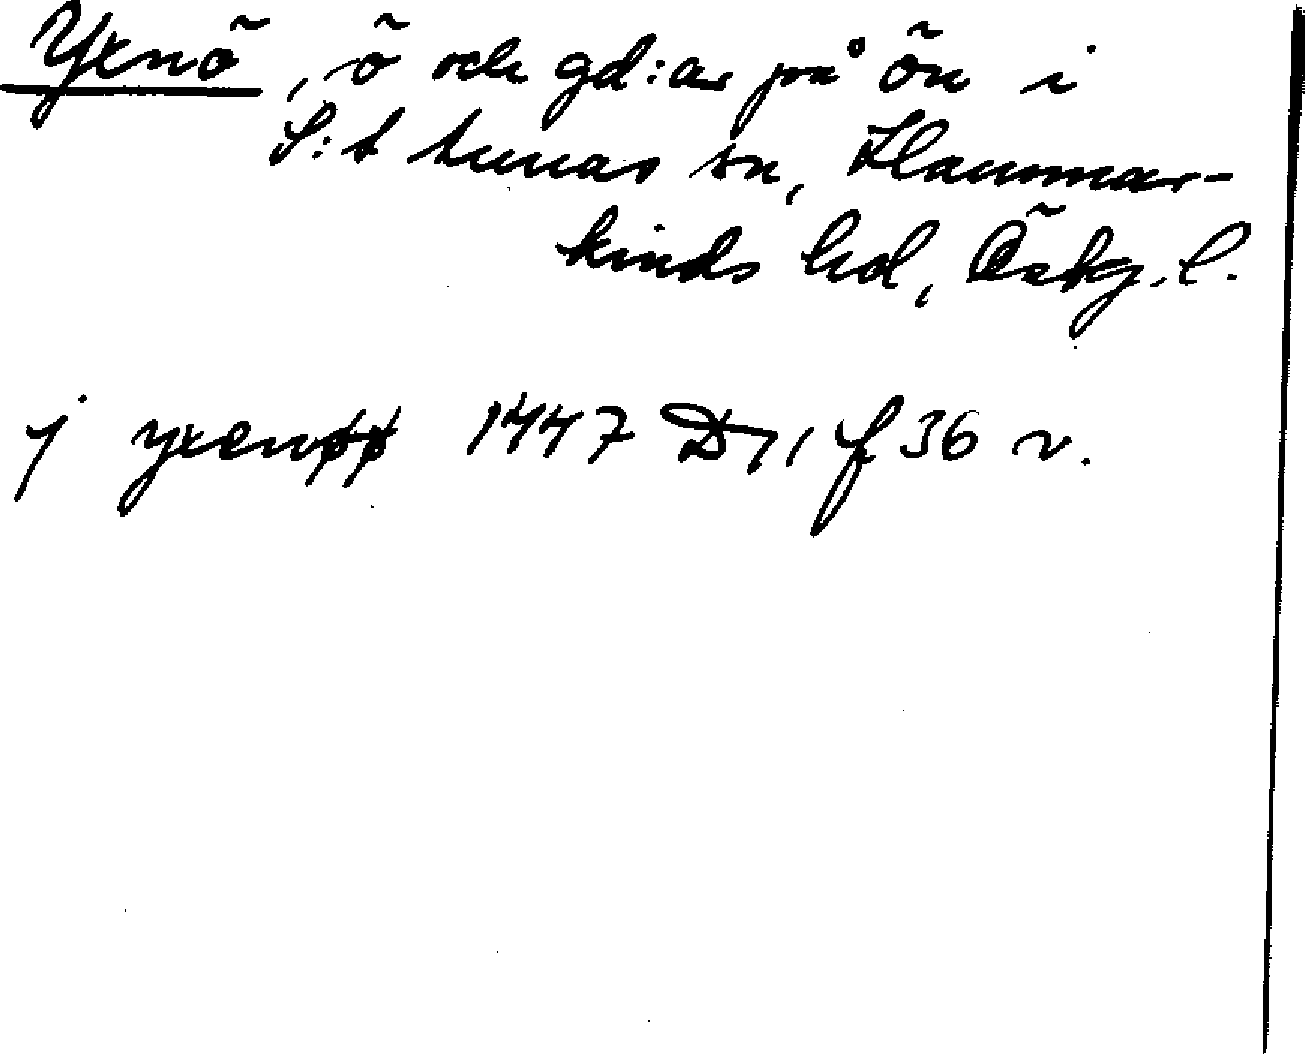 Yxnö, ö och gd:ar på ön i
S:t Annas sn, Hammar-
kinds hd, Östg. l.
j yxenøø 1447 D 7, f 36 v.